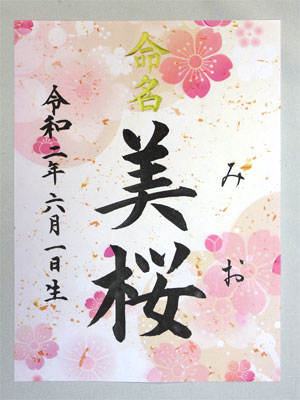 命名
美桜
みお
令和二年六月一日生